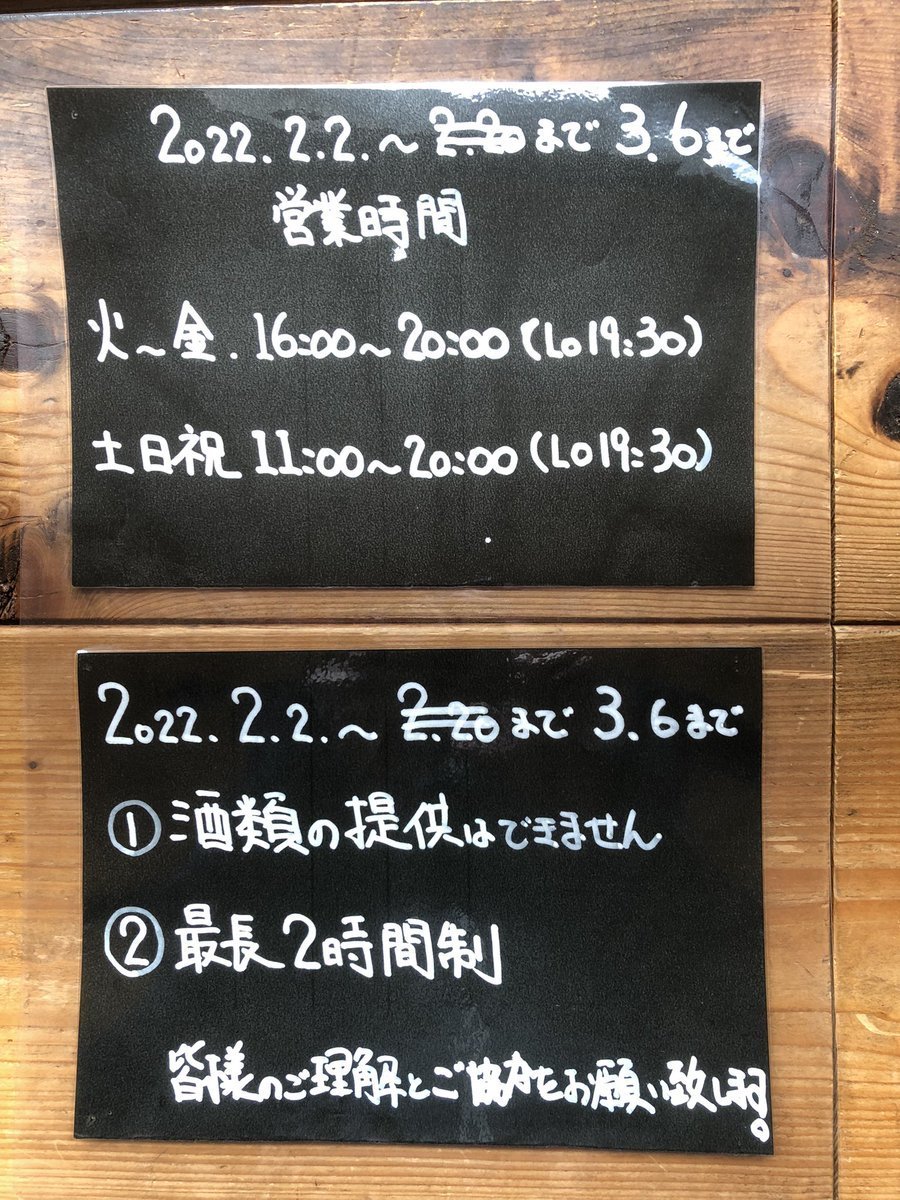 2022.2.2.〜2.20まで 3.6まで
営業時間
火〜金.16:00〜20:00(Lo19:30)
土日祝 11:00〜20:00(Lo19:30)
2022.2.2.〜2.20まで 3.6まで
①酒類の提供はできません
②最長2時間制
皆様のご理解とご協力をお願い致します。